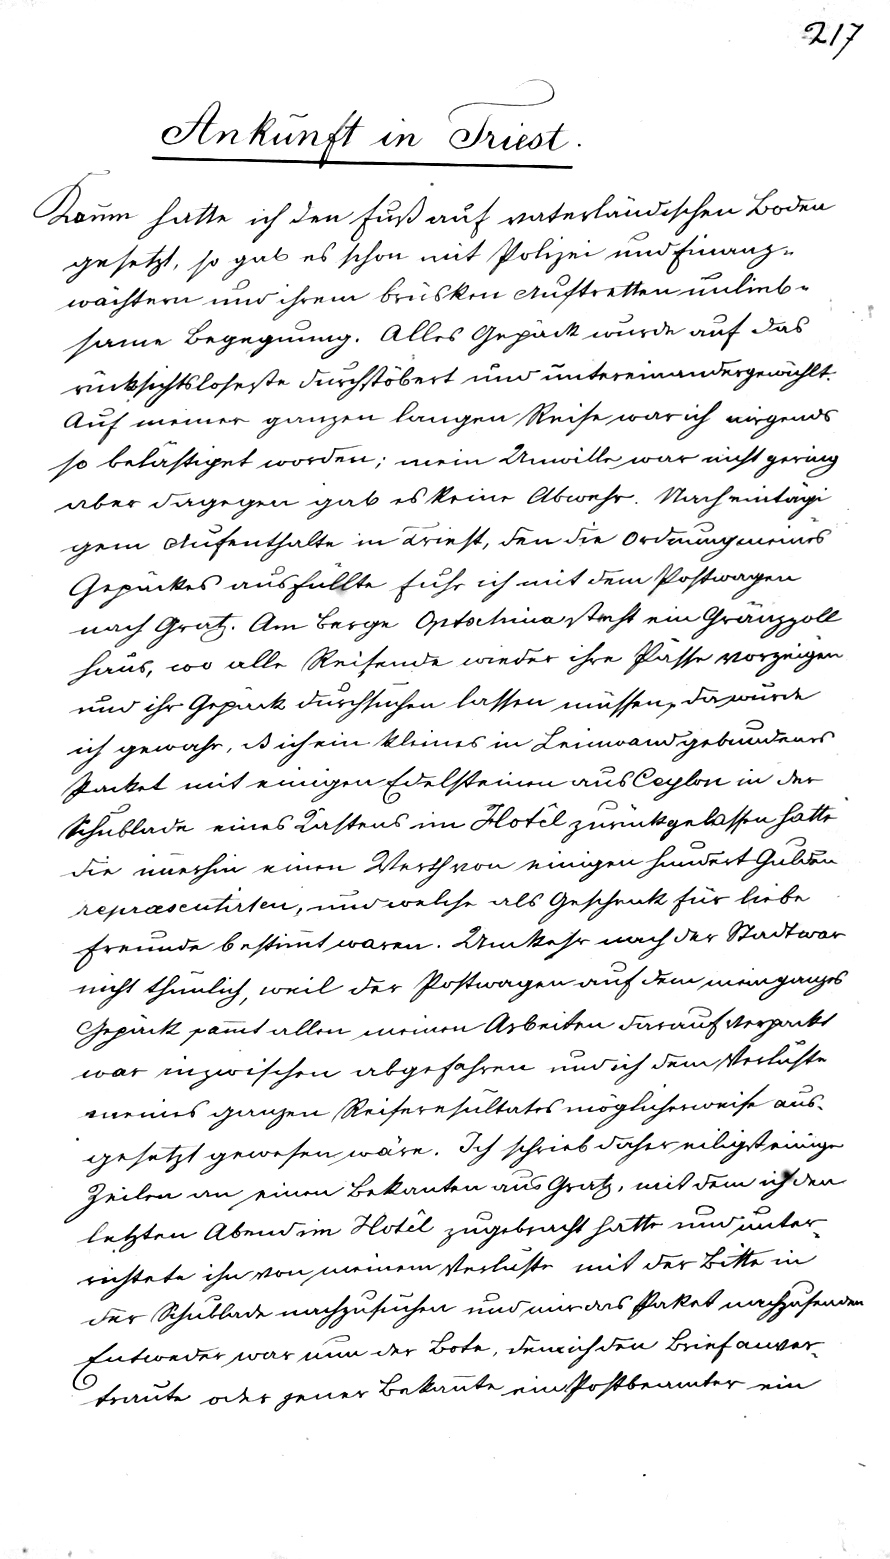 217
Ankunft in Triest.
Kaum hatte ich den Fuß auf vaterländischen Boden
gesetzt, so gab es schon mit Polizei und Finanz-
wächtern und ihrem brüsken Auftretten unlieb-
same Begegnung. Alles Gepäck wurde auf das
rücksichtsloseste durchstöbert und untereinandergewühlt.
Auf meiner ganzen langen Reise war ich nirgends
so belästiget worden; mein Unwille war nicht gering
aber dagegen gab es keine Abwehr. Nach eintägi
gem Aufenthalte in Triest, den die Ordnung meines
Gepäckes ausfüllte fuhr ich mit dem Postwagen
nach Gratz. Am Berge Optschina steht ein Gränzzoll
haus, wo alle Reisende wieder ihre Pässe vorzeigen
und ihr Gepäck durchsuchen lassen müssen, da wurde
ich gewahr, ß ich ein kleines in Leinwand gebundenes
Packet mit einigen Edelsteinen aus Ceylon in der
Schublade eines Kastens im Hotêl zurückgelassen hatte
die im̄erhin einen Werth von einigen hundert Gulden
repræsentirten, und welche als Geschenk für liebe
Freunde bestim̄t waren. Umkehr nach der Stadt war
nicht thunlich, weil der Postwagen auf dem mein ganzes
Gepäck sam̄t allen meinen Arbeiten darauf verpackt
war inzwischen abgefahren und ich dem Verluste
meines ganzen Reiseresultates möglicherweise aus-
gesetzt gewesen wäre. Ich schrieb daher eiligst einige
Zeilen an einen Bekanten aus Gratz, mit dem ich den
letzten Abend im Hotêl zugebracht hatte und unter-
richtete ihn von meinem Verluste mit der Bitte in
der Schublade nachzusuchen und mir das Paket nachzusenden
Entweder war nun der Bote, dem ich den Brief anver-
traute oder jener Bekan̄te ein Postbeamter ein